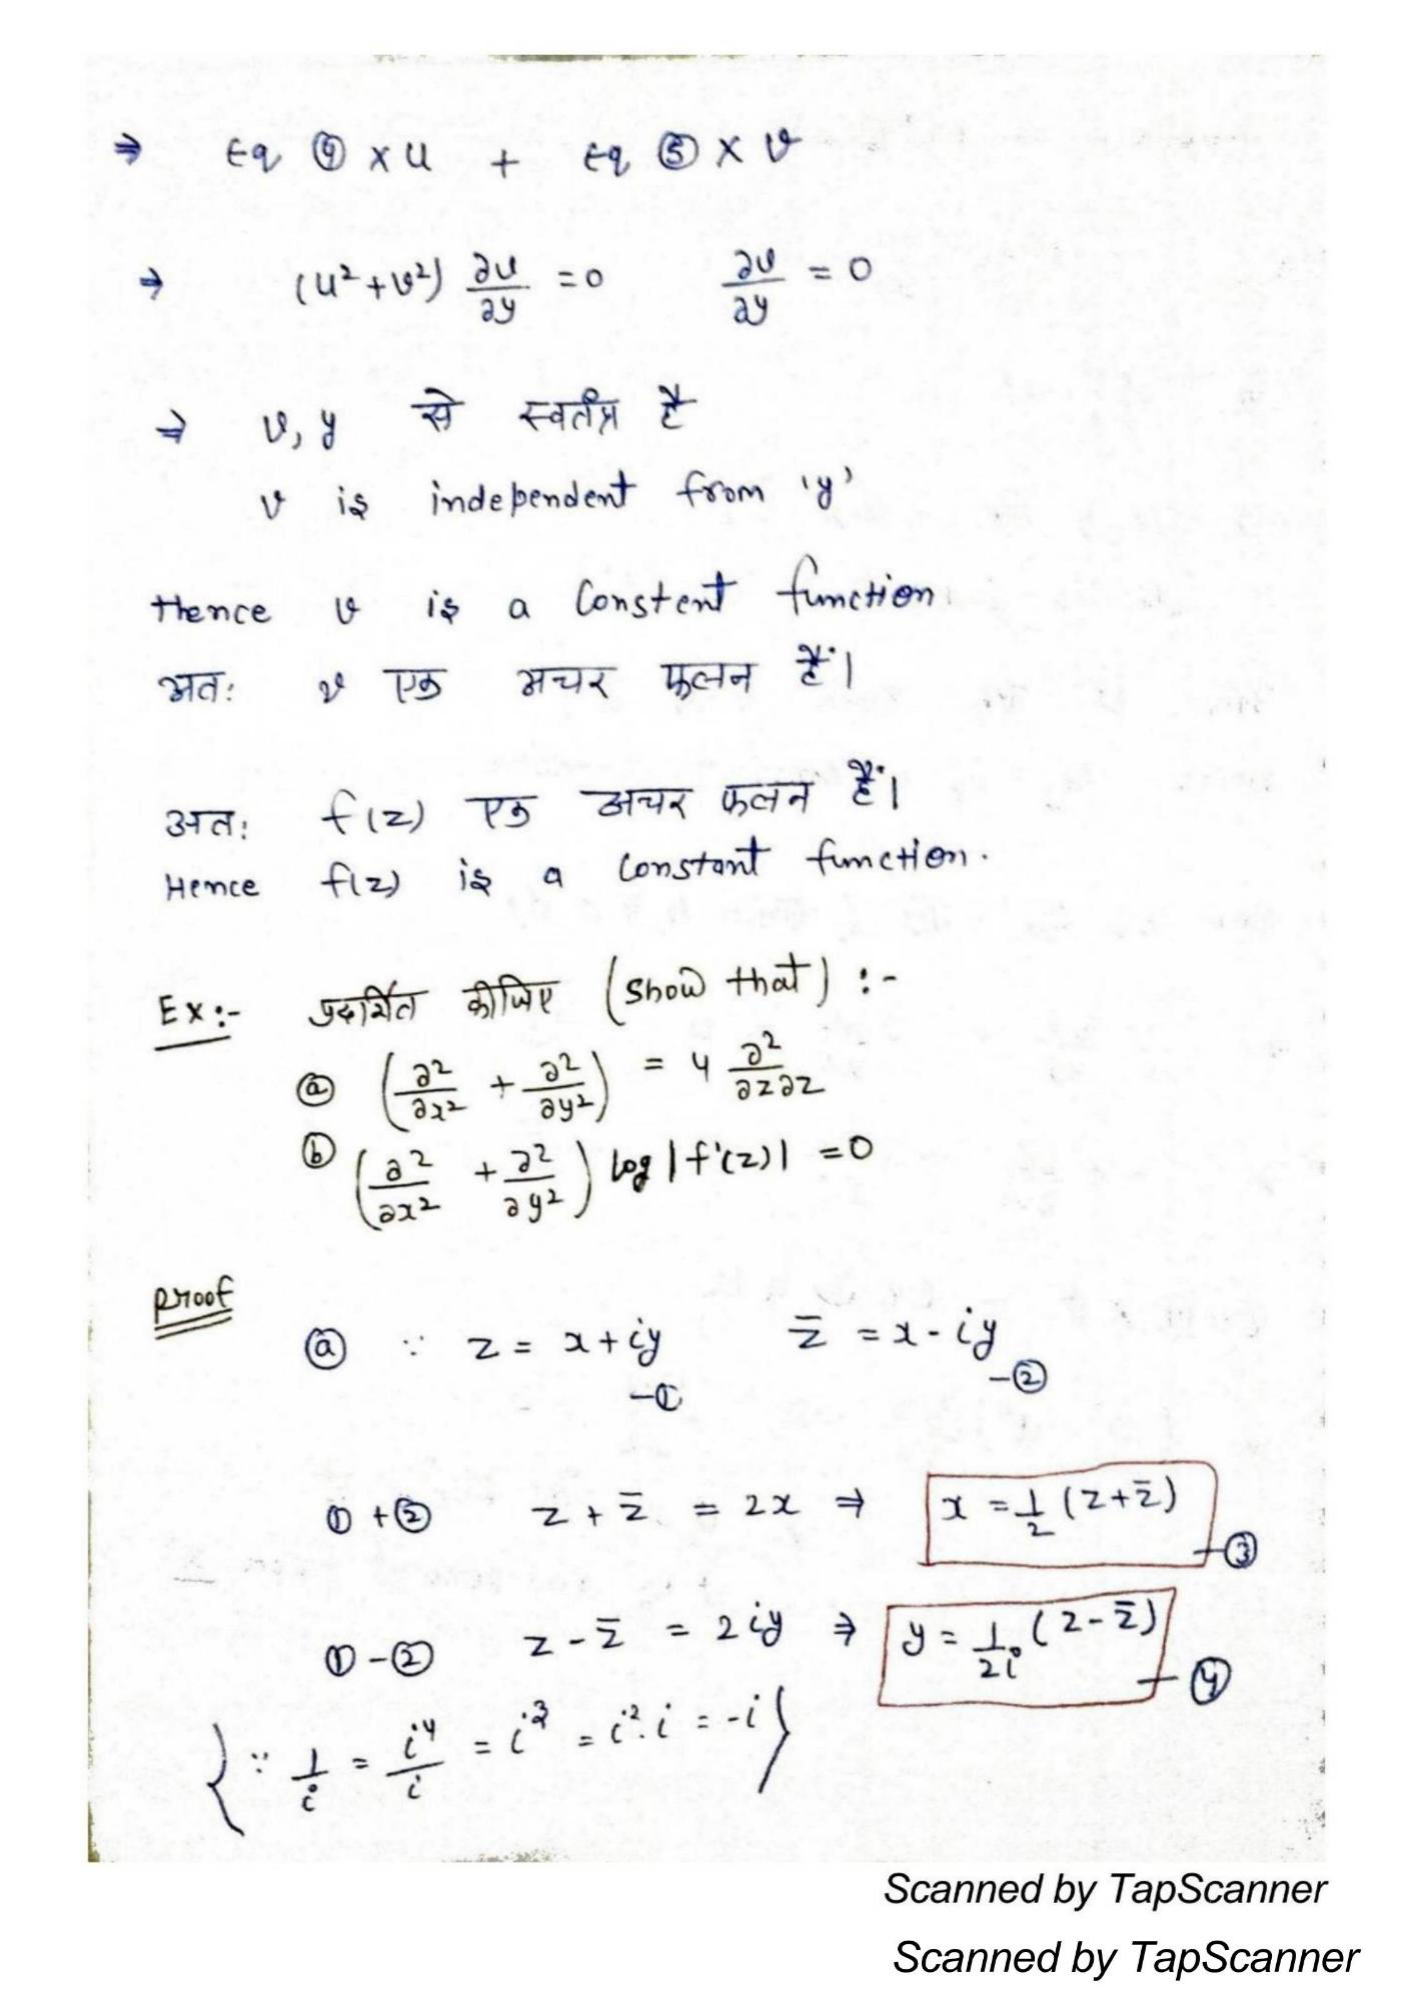 ⇒ Eq ④ × u + Eq ⑤ × v
⇒ (u² + v²) ∂v/∂y = 0 ∂v/∂y = 0
⇒ v, y से स्वतंत्र है
v is independent from 'y'
Hence v is a Constent function
अतः v एक अचर फलन हैं।
अतः f(z) एक अचर फलन हैं।
Hence f(z) is a Constant function.
Ex:- प्रदर्शित कीजिए (Show that) :-
ⓐ (∂²/∂x² + ∂²/∂y²) = 4 ∂²/∂z∂z
ⓑ (∂²/∂x² + ∂²/∂y²) log |f'(z)| = 0
Proof
ⓐ ∵ z = x + iy -① z̄ = x - iy -②
① + ② z + z̄ = 2x ⇒ x = 1/2 (z + z̄) -③
① - ② z - z̄ = 2iy ⇒ y = 1/2i (z - z̄) -④
{∵ 1/i = i⁴/i = i³ = i².i = -i}
Scanned by TapScanner
Scanned by TapScanner